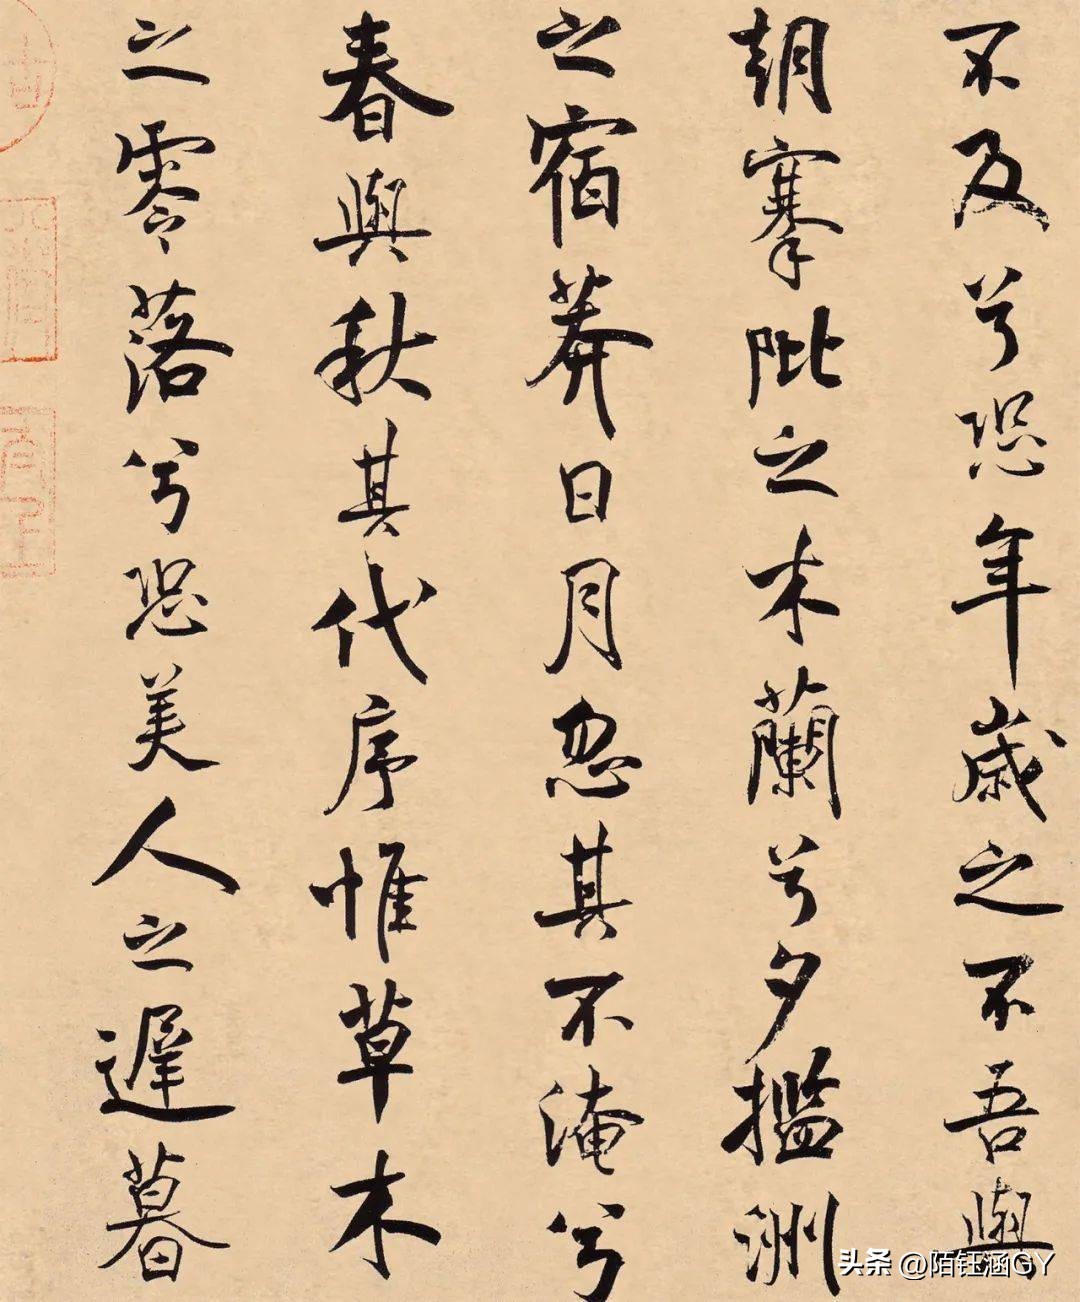 不及兮恐年歲之不吾與
朝搴阰之木蘭兮夕㩜洲
之宿莽日月忽其不淹兮
春與秋其代序惟草木
之零落兮恐美人之遲暮
头条 @陌钰涵GY